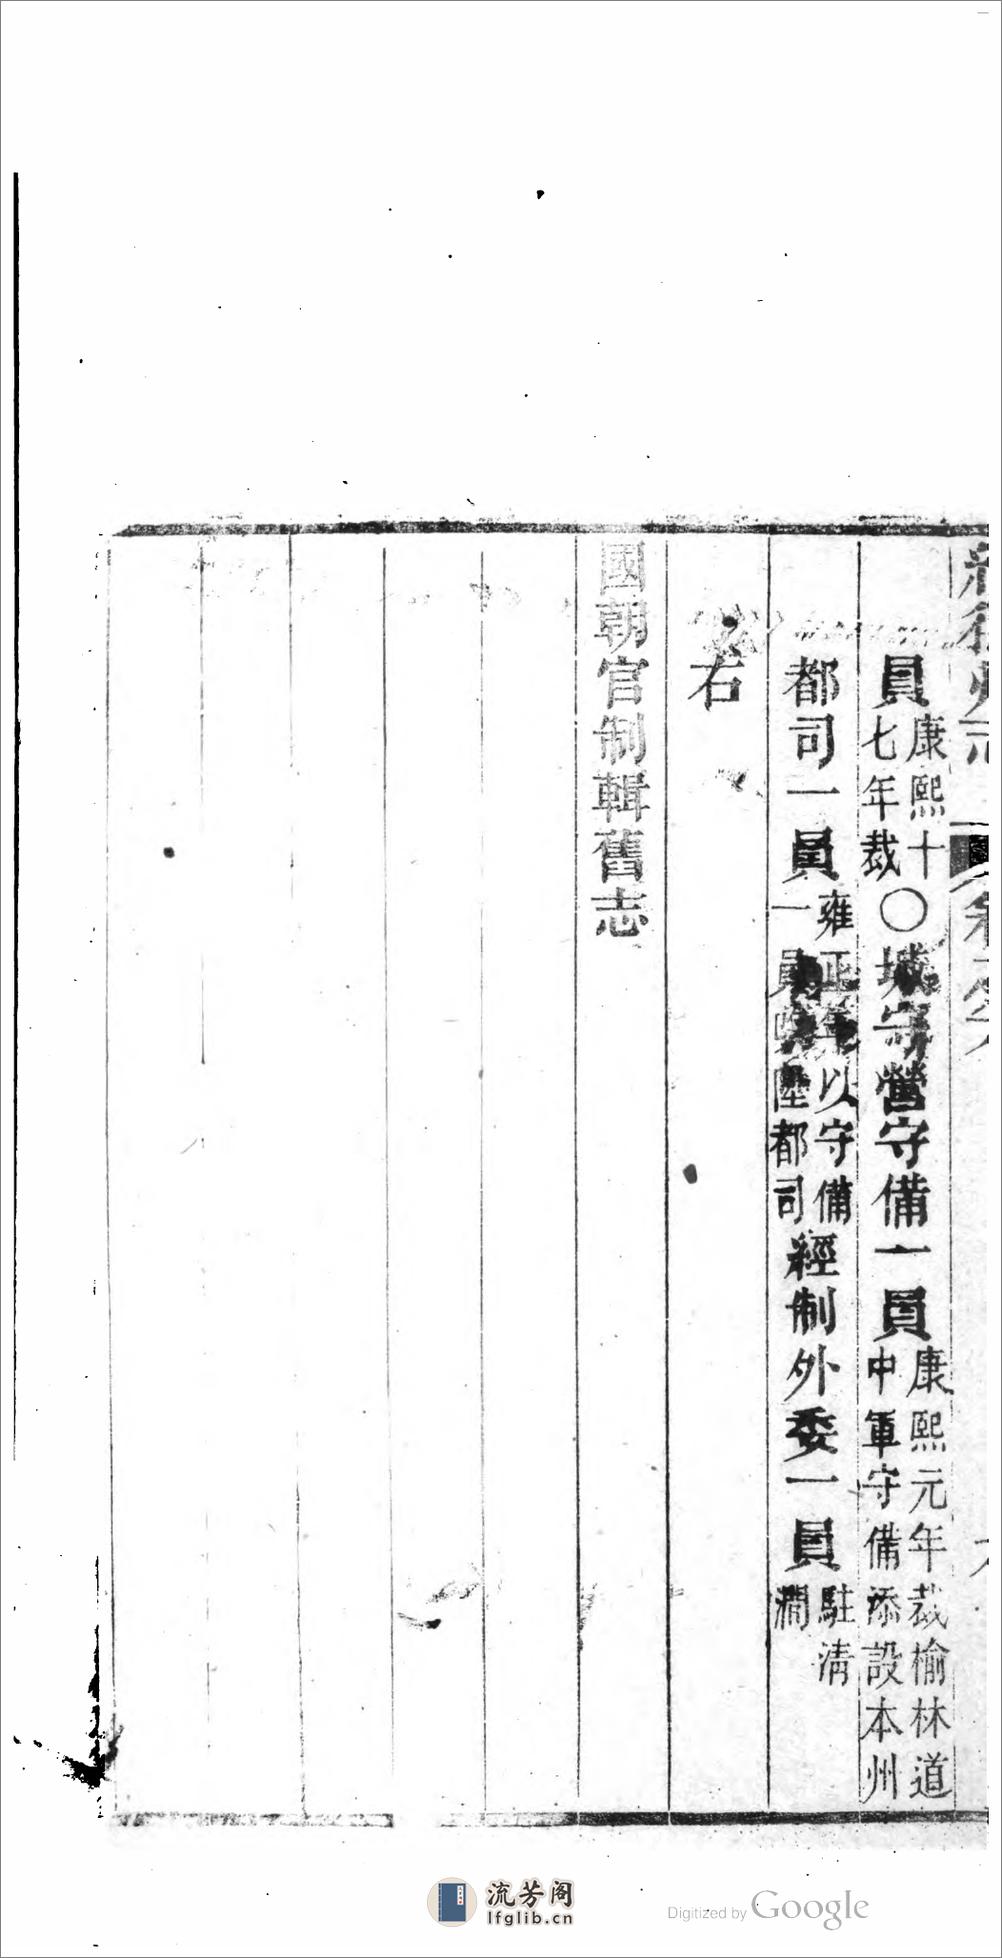 員康熙十七年裁〇城守營守備一員康熙元年裁榆林道中軍守備添設本州
都司一員雍正年以守備一員陞都司經制外委一員駐淸澗
右
國朝官制輯舊志
流芳阁
lfglib.cn
Digitized by Google